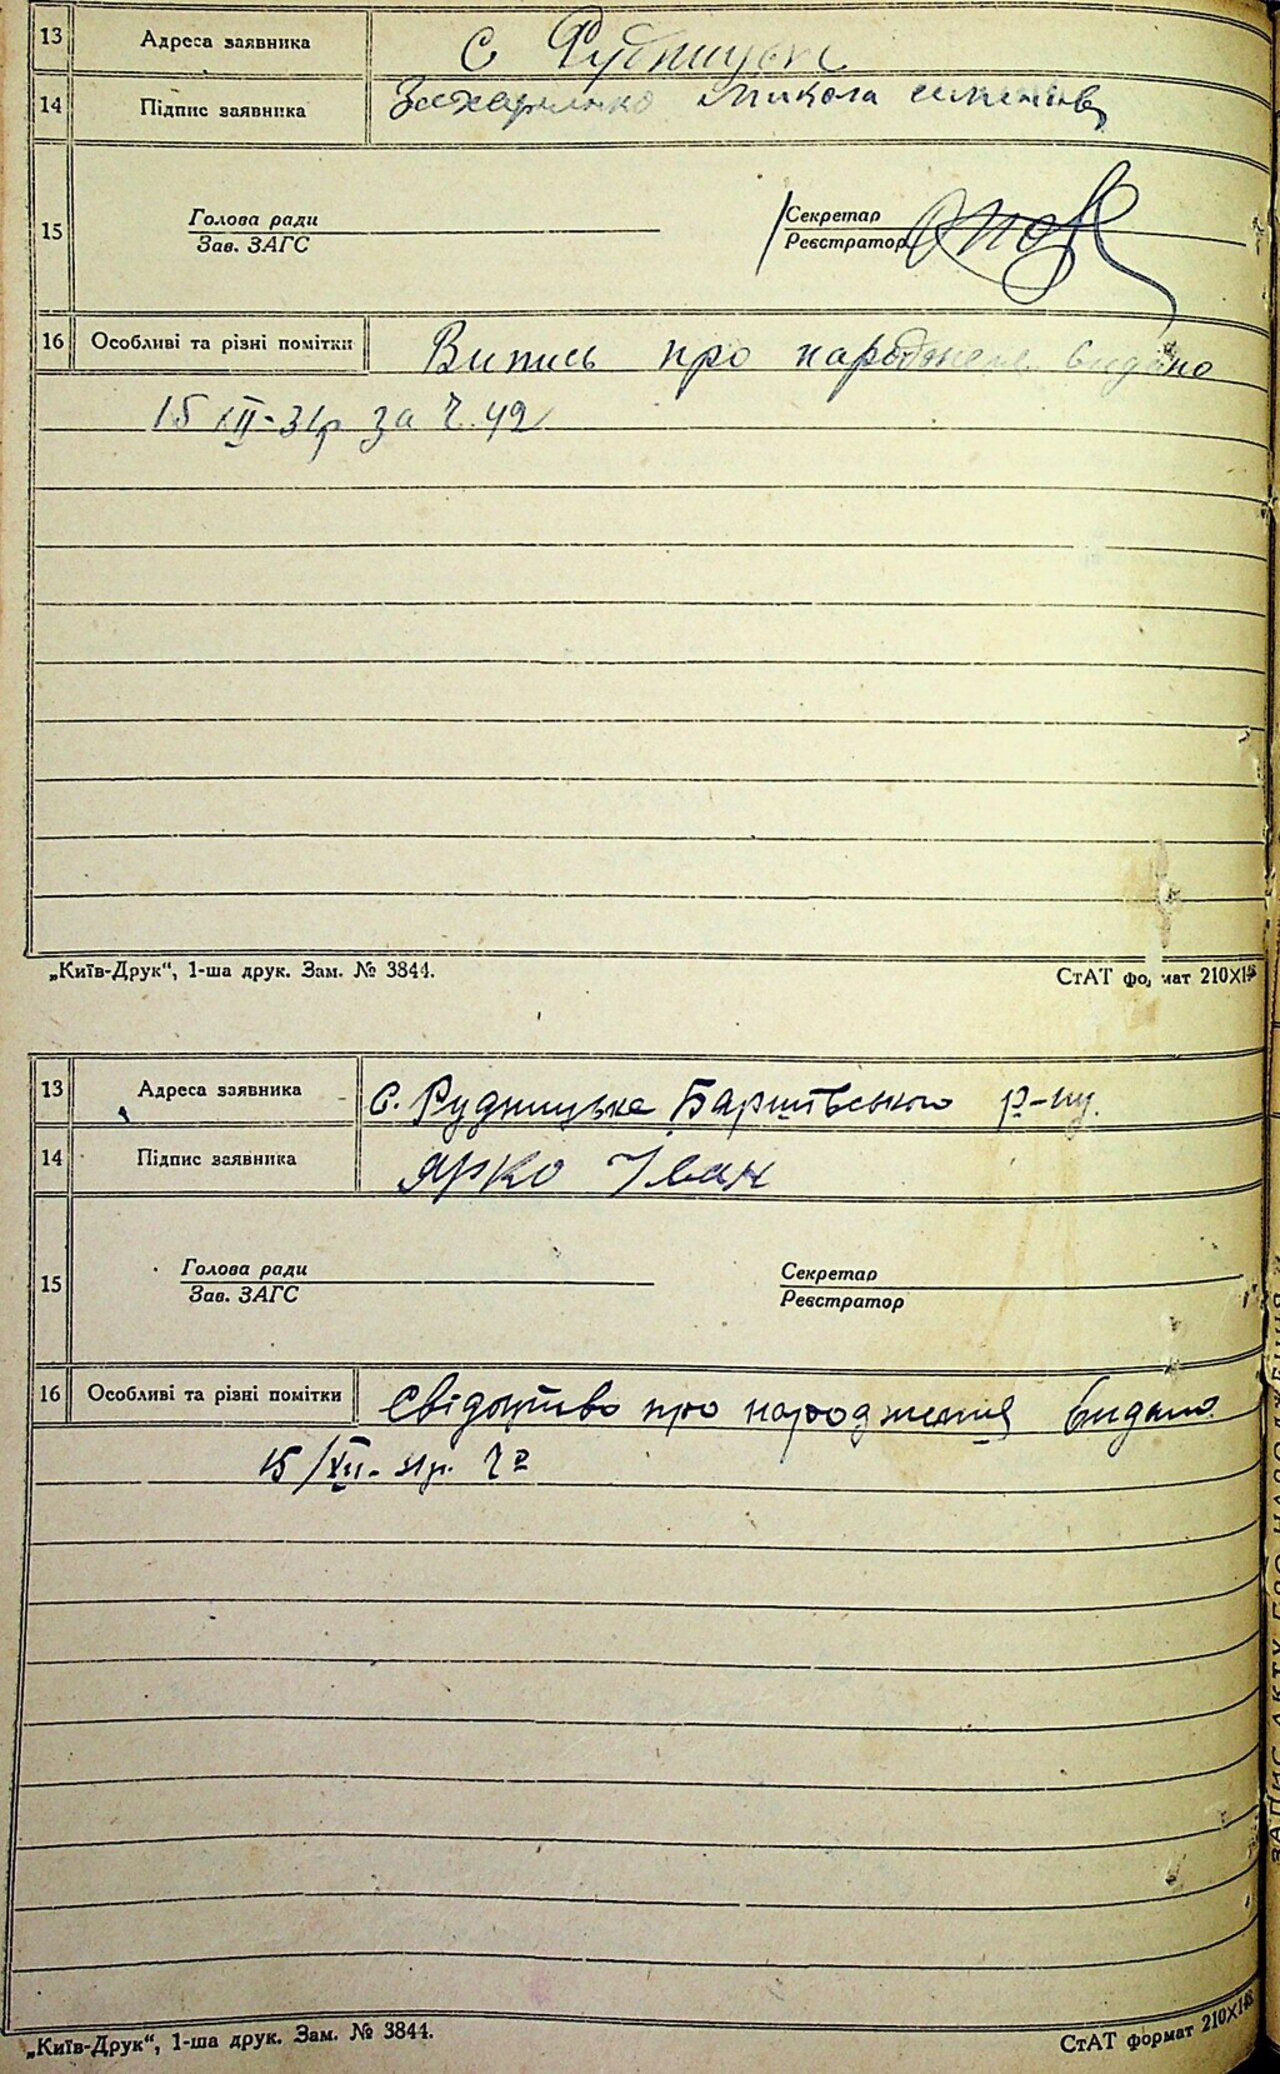 13 Адреса заявника с Рудницьке
14 Підпис заявника Захарченко Микола
15 Голова ради Секретар
Зав. ЗАГС Реєстратор
16 Особливі та різні помітки Випись про народжен. видано
15 XII-31р за Ч. 42
„Київ-Друк“, 1-ша друк. Зам. № 3844. СтАТ формат 210X148
13 Адреса заявника с. Рудницьке Баришівського р-ну.
14 Підпис заявника Ярко Іван
15 Голова ради Секретар
Зав. ЗАГС Реєстратор
16 Особливі та різні помітки Свідоцтво про народження видано.
15/XII-31р.
„Київ-Друк“, 1-ша друк. Зам. № 3844. СтАТ формат 210X148